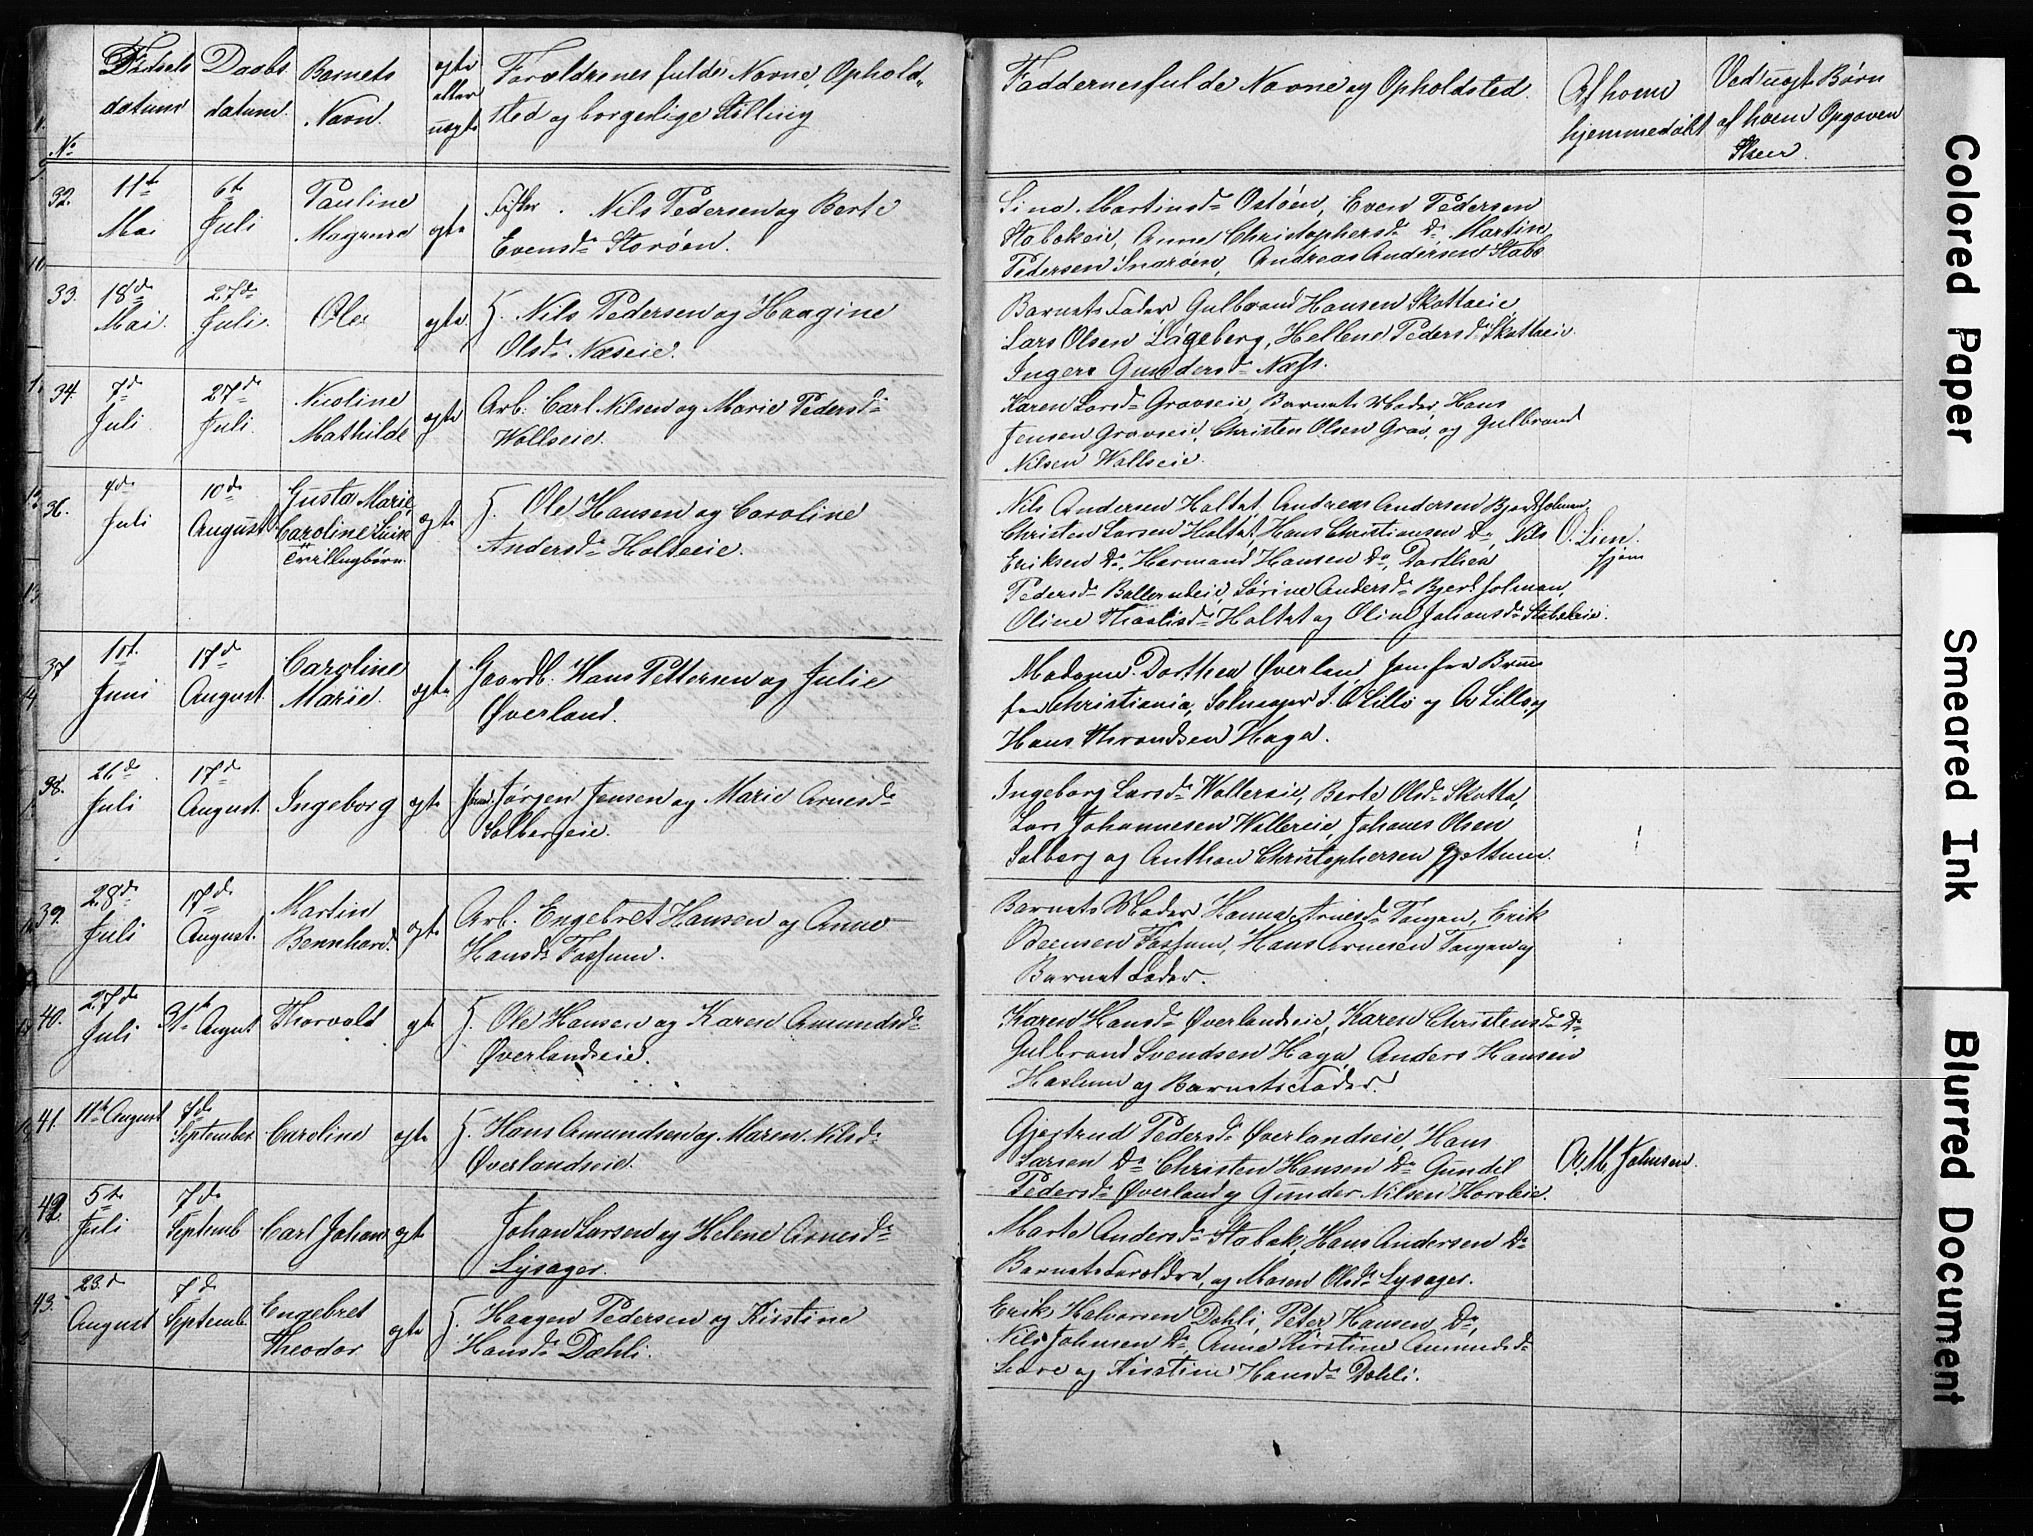 Fødsels datum
Daabs datum
Barnets Navn
ægte eller uægte
Forældrenes fulde Navne, Ophold-
sted og borgerlige Stilling
Faddernes fulde Navne og Opholdsted.
Af hvem hjemmedøbt
Ved uægte Børn af hvem Opgaven Skeer.
No
32. 11te Mai
6te Juli
Pauline
ægte
Fisker. Nils Pedersen og Berte
Evensdr Storøen.
Martinsdr Ostøen, Even Pedersen
Stabekeie, Anne Christophersdr Do Martin
Pedersen Snarøen, Andreas Andersen Stabek
33. 18de Mai.
27de Juli.
Ole
ægte
Nils Pedersen og Haagine
Olsdr Næseie.
Barnets Fader, Gulbrand Hansen Skottaeie,
Lars Olsen Høgeberg, Hellene Pedersdr Skottaeie
Ingers Gundersdr Næss.
34. 7de Juli.
27de Juli.
Nicoline Mathilde
ægte
Arb: Carl Nilsen og Marie Pedersdr
Wollseie.
Karen Larsdr Gravseie, Barnets Moder, Hans
Jensen Gravseie, Christen Olsen Grav, og Gulbrand
Nilsen Wollseie.
36. Juli
10de August
Gusta Marie,
Caroline Luise
Tvillingbørn.
ægte
Ole Hansen og Caroline
Andersdr Holteeie.
Nils Andersen Holtet, Andreas Andersen
Christen Larsen Holtet, Hans Christiansen Do, Nils
Eriksen Do, Harmand Hansen Do, Dorthea
Pedersdr Ballerudeie, Sørine Andersdr
Oline Holtet og Oline Johansdr Stabekeie.
O. Lien.
hjem
37 1ste Juni
17de August.
Caroline Marie.
ægte
Gaardb. Hans Pettersen og Julie
Øverland.
Madame Dorthea Øverland, Jomfru Bruu
fra Christiania, J. O Lillo og A Lillo, og
Hans Throndsen Haga.
38. 21de Juli
17de August.
Ingeborg
ægte
Jørgen Jensen og Marie Arnesdr
Solbergeie.
Ingeborg Larsdr Wollereie, Berte Olsdr Skotta,
Lars Johannesen Wollereie, Johanes Olsen
Solberg og Anthon Christophersen Gjettum.
39. 28de Juli
17de August.
Martin Bernhard.
ægte
Arb. Engebret Hansen og Anne
Hansdr Fossum.
Barnets Moder, Hanna Arnesdr Tangen, Erik
Fossum, Hans Arnesen Tangen og
Barnet Fader.
40. 27de Juli
31te August
Thorvald
ægte
Ole Hansen og Karen Amundsdr
Øverlandseie.
Karen Hansdr Øverlandseie, Karen Christensdr Do
Gulbrand Svendsen Haga Anders Hansen
Haslum og Barnets Fader.
41. 11te August
7de September
Caroline
ægte
Hans Amundsen og Maren Nilsdr
Øverlandseie.
Gjertrud Pedersdr Øverlandseie, Hans
Larsen Do Christen Hansen Do Gundil
Pedersdr Øverland og Gunder Nilsen Horneie.
A. M. Johnsen.
42. 5te Juli
7de Septemb
Carl Johan
ægte
Johan Larsen og Helene Arnesdr
Lysager.
Marte Andersdr Stabek, Hans Andersen Do
Barnets Forældre, og Maren Olsdr Lysager.
43. 23de August
7de Septemb.
Engebret Theodor
ægte
Haagen Pedersen og Kirstine
Hansdr Dæhli.
Erik Halvorsen Dæhli, Peter Hansen Do,
Nils Johnsen Do, Anne Kirstine Amundsdr
og Kirstine Hansdr Dæhli.
Colored Paper
Smeared Ink
Blurred Document